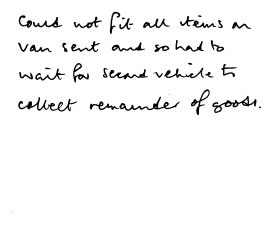 Could not fit all items on
van sent and so had to
wait for second vehicle to
collect remainder of goods.